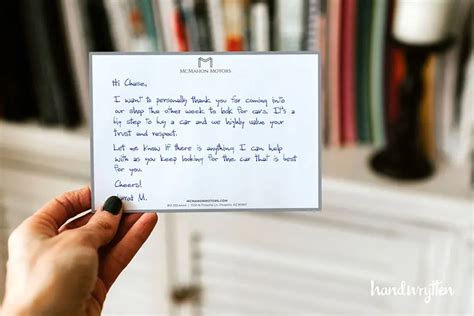 MCMAHON MOTORS
Hi Chase,
I want to personally thank you for coming into
our shop the other week to look for cars. It's a
big step to buy a car and we highly value your
trust and respect.
Let me know if there is anything I can help
with as you keep looking for the car that is best
for you.
Cheers!
Jarrod M.
MCMAHONMOTORS.COM
handwrytten